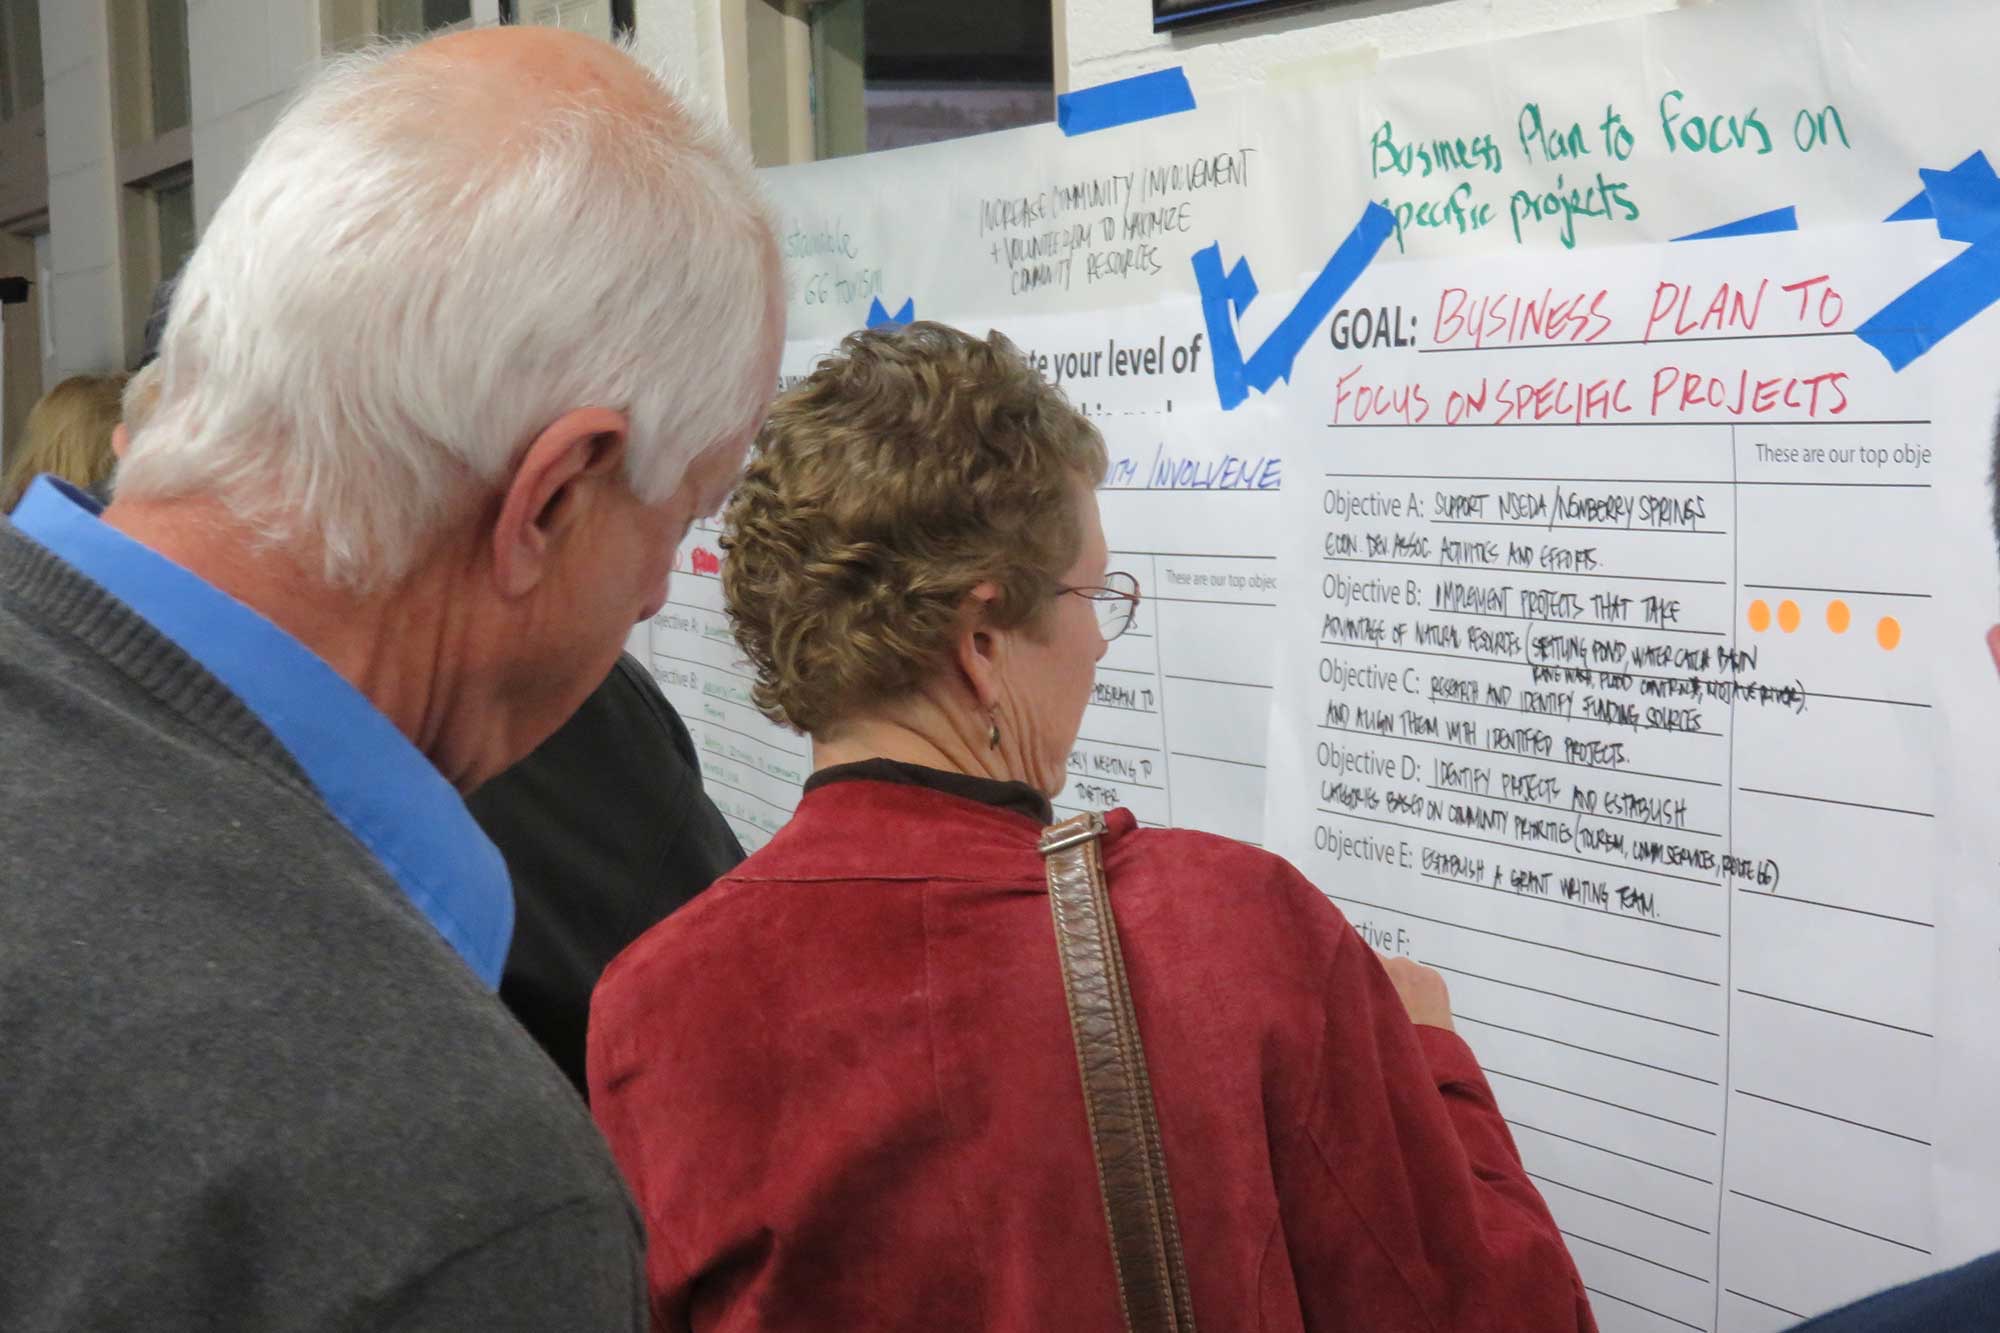 66 tourism
INCREASE COMMUNITY INVOLVEMENT
+ VOLUNTEERISM TO MAXIMIZE
COMMUNITY RESOURCES
Business Plan to Focus on
specific projects
your level of
INVOLVEME
These are our top objec
Objective B:
PROGRAM TO
MEETING TO
TOGETHER
GOAL: BUSINESS PLAN TO
FOCUS ON SPECIFIC PROJECTS
These are our top obje
Objective A: SUPPORT NSEDA/NEWBERRY SPRINGS
ECON. DEV. ASSOC. ACTIVITIES AND EFFORTS.
Objective B: IMPLEMENT PROJECTS THAT TAKE
ADVANTAGE OF NATURAL RESOURCES (SETTLING POND, WATER CATCH BASIN
FLOOD CONTROL, MOJAVE RIVER).
Objective C: RESEARCH AND IDENTIFY FUNDING SOURCES
AND ALIGN THEM WITH IDENTIFIED PROJECTS.
Objective D: IDENTIFY PROJECTS AND ESTABLISH
CATEGORIES BASED ON COMMUNITY PRIORITIES (TOURISM, COMM SERVICES, ROUTE 66)
Objective E: ESTABLISH A GRANT WRITING TEAM.
tive F: